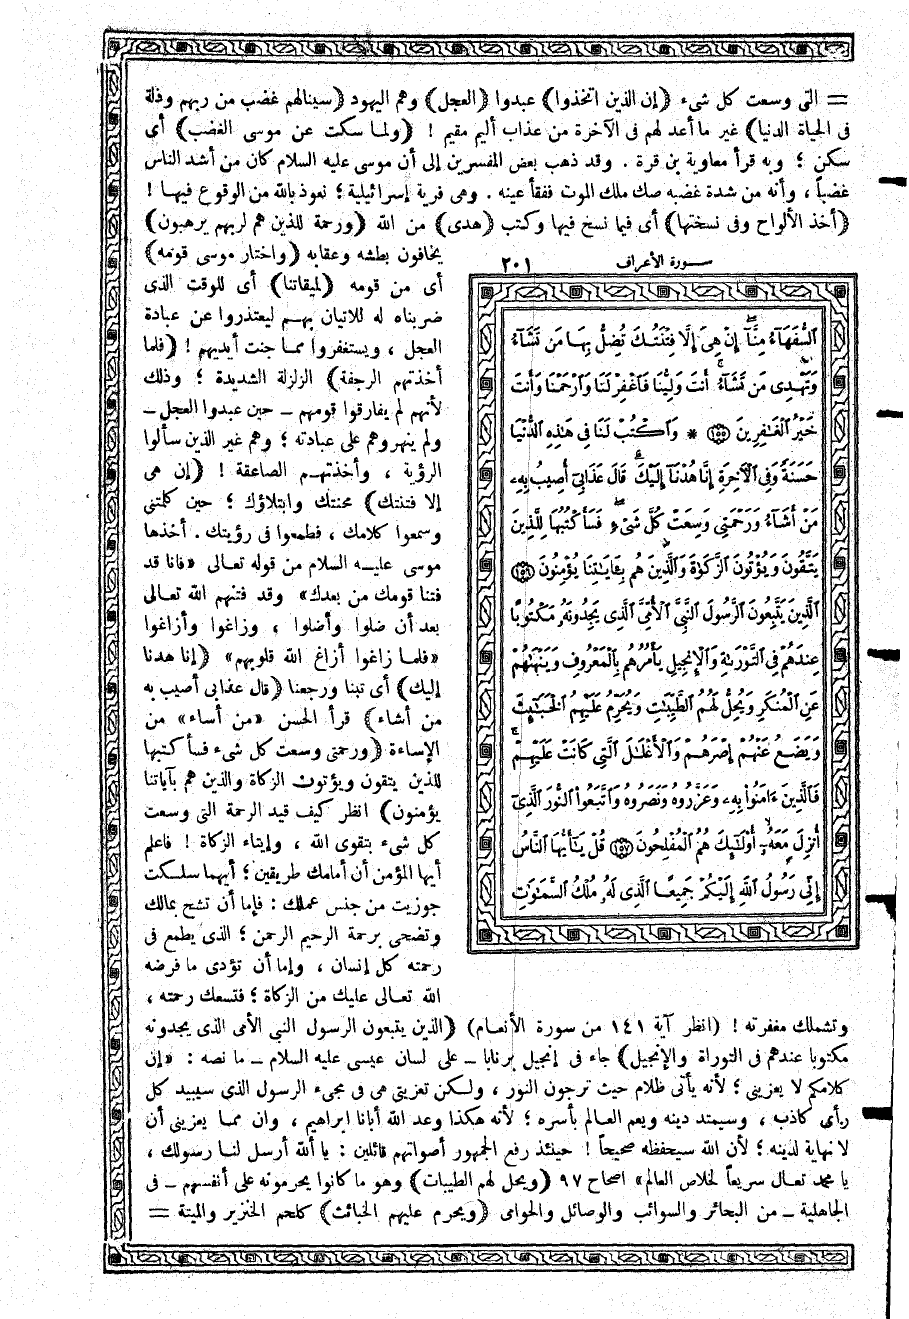 = التى وسعت كل شىء (إن الذين اتخذوا) عبدوا (العجل) وهم اليهود (سينالهم غضب من ربهم وذلة
فى الحياة الدنيا) غير ما أعد لهم فى الآخرة من عذاب أليم مقيم ! (ولما سكت عن موسى الغضب) أى
سكن ؛ وبه قرأ معاوية بن قرة . وقد ذهب بعض المفسرين إلى أن موسى عليه السلام كان من أشد الناس
غضباً ، وأنه من شدة غضبه صك ملك الموت ففقأ عينه . وهى فرية إسرائيلية ؛ نعوذ بالله من الوقوع فيها !
(أخذ الألواح وفى نسختها) أى فيما نسخ فيها وكتب (هدى) من الله (ورحمة للذين هم لربهم يرهبون)
يخافون بطشه وعقابه (واختار موسى قومه)
أى من قومه (لميقاتنا) أى للوقت الذى
ضربناه له للاتيان بهم ليعتذروا عن عبادة
العجل ، ويستغفروا مما جنت أيديهم ! (فلما
أخذتهم الرجفة) الزلزلة الشديدة ؛ وذلك
لأنهم لم يفارقوا قومهم ـ حين عبدوا العجل ـ
ولم ينهروهم على عبادته ؛ وهم غير الذين سألوا
الرؤية ، وأخذتهم الصاعقة ! (إن هى
إلا فتنتك) محنتك وابتلاؤك ؛ حين كلمتنى
وسمعوا كلامك ، فطمعوا فى رؤيتك . أخذها
موسى عليه السلام من قوله تعالى «فانا قد
فتنا قومك من بعدك» وقد فتنهم الله تعالى
بعد أن ضلوا وأضلوا ، وزاغوا وأزاغوا
«فلما زاغوا أزاغ الله قلوبهم» (إنا هدنا
إليك) أى تبنا ورجعنا (قال عذابى أصيب به
من أشاء) قرأ الحسن «من أساء» من
الإساءة (ورحمتى وسعت كل شىء فسأكتبها
للذين يتقون ويؤتون الزكاة والذين هم بآياتنا
يؤمنون) انظر كيف قيد الرحمة التى وسعت
كل شىء بتقوى الله ، وإيتاء الزكاة ! فاعلم
أيها المؤمن أن أمامك طريقين ؛ أيهما سلكت
جوزيت من جنس عملك : فإما أن تشح بمالك
وتضحى برحمة الرحيم الرحمن ؛ الذى يطمع فى
رحمته كل إنسان ، وإما أن تؤدى ما فرضه
الله تعالى عليك من الزكاة ؛ فتسعك رحمته ،
سورة الأعراف ٢٠١
ٱلسُّفَهَآءُ مِنَّآ إِنْ هِىَ إِلَّا فِتْنَتُكَ تُضِلُّ بِهَا مَن تَشَآءُ
وَتَهْدِى مَن تَشَآءُ أَنتَ وَلِيُّنَا فَٱغْفِرْ لَنَا وَٱرْحَمْنَا وَأَنتَ
خَيْرُ ٱلْغَٰفِرِينَ ١٥٥ * وَٱكْتُبْ لَنَا فِى هَٰذِهِ ٱلدُّنْيَا
حَسَنَةً وَفِى ٱلْءَاخِرَةِ إِنَّا هُدْنَآ إِلَيْكَ قَالَ عَذَابِىٓ أُصِيبُ بِهِۦ
مَنْ أَشَآءُ وَرَحْمَتِى وَسِعَتْ كُلَّ شَىْءٍ فَسَأَكْتُبُهَا لِلَّذِينَ
يَتَّقُونَ وَيُؤْتُونَ ٱلزَّكَوٰةَ وَٱلَّذِينَ هُم بِـَٔايَٰتِنَا يُؤْمِنُونَ ١٥٦
ٱلَّذِينَ يَتَّبِعُونَ ٱلرَّسُولَ ٱلنَّبِىَّ ٱلْأُمِّىَّ ٱلَّذِى يَجِدُونَهُۥ مَكْتُوبًا
عِندَهُمْ فِى ٱلتَّوْرَىٰةِ وَٱلْإِنجِيلِ يَأْمُرُهُم بِٱلْمَعْرُوفِ وَيَنْهَىٰهُمْ
عَنِ ٱلْمُنكَرِ وَيُحِلُّ لَهُمُ ٱلطَّيِّبَٰتِ وَيُحَرِّمُ عَلَيْهِمُ ٱلْخَبَٰٓئِثَ
وَيَضَعُ عَنْهُمْ إِصْرَهُمْ وَٱلْأَغْلَٰلَ ٱلَّتِى كَانَتْ عَلَيْهِمْ
فَٱلَّذِينَ ءَامَنُوا۟ بِهِۦ وَعَزَّرُوهُ وَنَصَرُوهُ وَٱتَّبَعُوا۟ ٱلنُّورَ ٱلَّذِىٓ
أُنزِلَ مَعَهُۥٓ أُو۟لَٰٓئِكَ هُمُ ٱلْمُفْلِحُونَ ١٥٧ قُلْ يَٰٓأَيُّهَا ٱلنَّاسُ
إِنِّى رَسُولُ ٱللَّهِ إِلَيْكُمْ جَمِيعًا ٱلَّذِى لَهُۥ مُلْكُ ٱلسَّمَٰوَٰتِ
وتشملك مغفرته ! (انظر آية ١٤١ من سورة الأنعام) (الذين يتبعون الرسول النبى الأمى الذى يجدونه
مكتوبا عندهم فى التوراة والإنجيل) جاء فى إنجيل برنابا ـ على لسان عيسى عليه السلام ـ ما نصه : «إن
كلامكم لا يعزينى ؛ لأنه يأتى ظلام حيث ترجون النور ، ولكن تعزيتى هى فى مجىء الرسول الذى سيبيد كل
رأى كاذب ، وسيمتد دينه ويعم العالم بأسره ؛ لأنه هكذا وعد الله أبانا ابراهيم ، وان مما يعزينى أن
لا نهاية لدينه ؛ لأن الله سيحفظه صحيحاً ! حينئذ رفع الجمهور أصواتهم قائلين : يا ألله أرسل لنا رسولك ،
يا محمد تعال سريعاً لخلاص العالم» اصحاح ٩٧ (ويحل لهم الطيبات) وهو ما كانوا يحرمونه على أنفسهم ـ فى
الجاهلية ـ من البحائر والسوائب والوصائل والحوامى (ويحرم عليهم الخبائث) كلحم الخنزير والميتة =